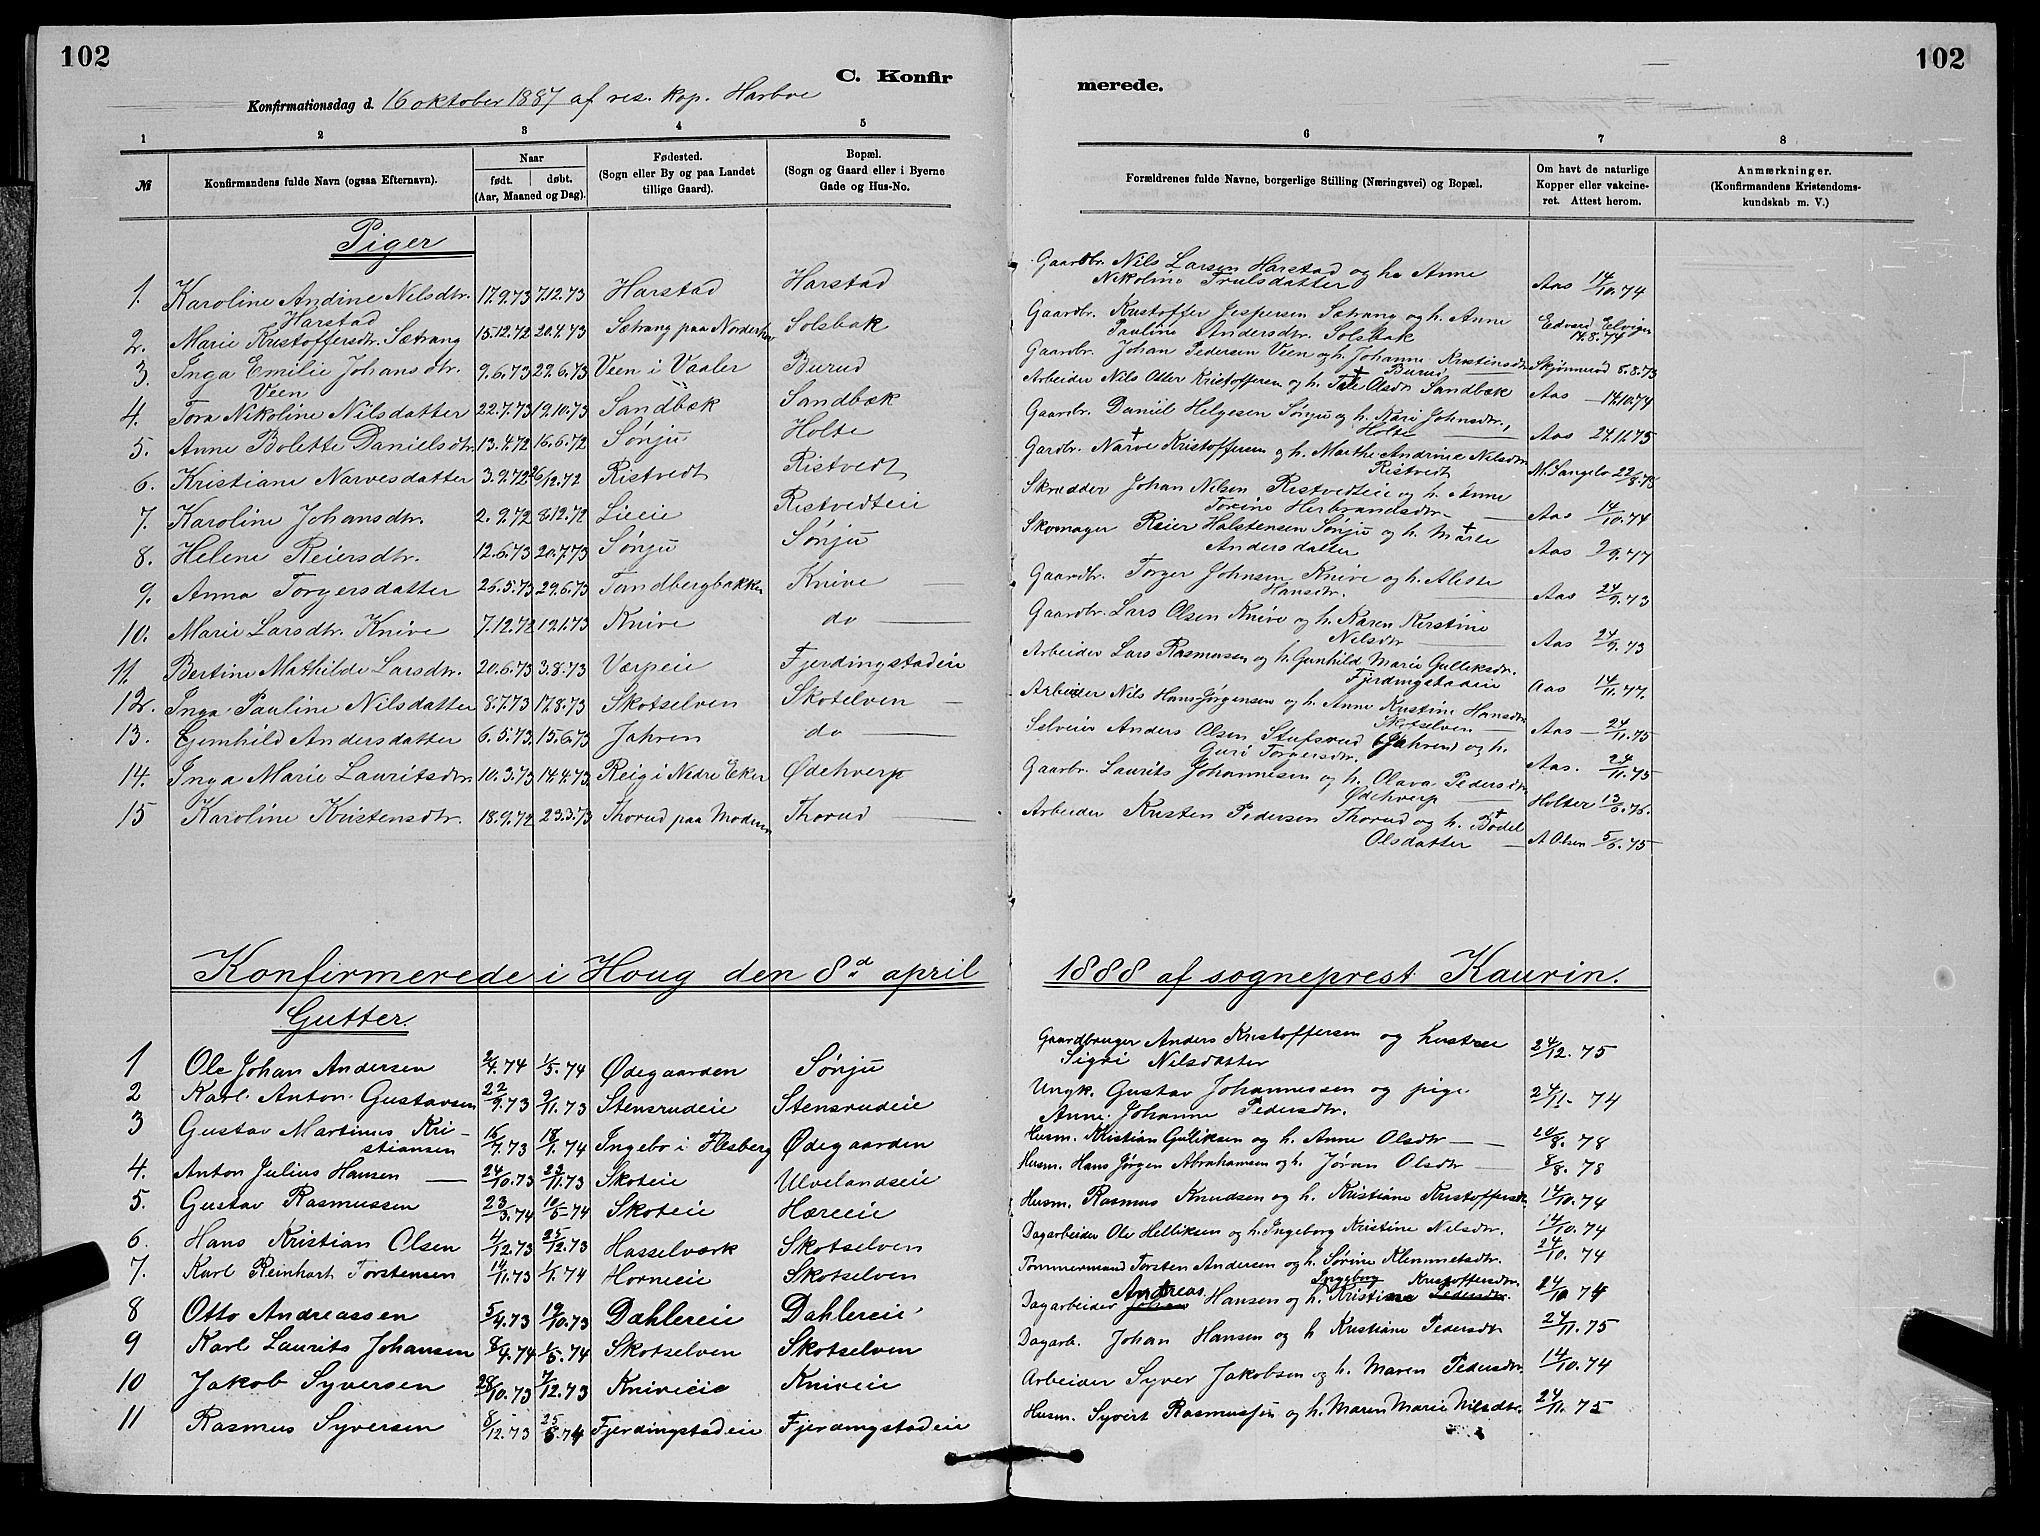 102
102
C. Konfir
merede.
Konfirmationsdag d. 16 oktober 1887 af res. kap. Harboe
1 2 3 4 5
6 7 8
№
Konfirmandens fulde Navn (ogsaa Efternavn).
Naar
født. døbt.
(Aar, Maaned og Dag).
Fødested.
(Sogn eller By og paa Landet
tillige Gaard).
Bopæl.
(Sogn og Gaard eller i Byerne
Gade og Hus-No.
Forældrenes fulde Navne, borgerlige Stilling (Næringsvei) og Bopæl.
Om havt de naturlige
Kopper eller vakcine-
ret. Attest herom.
Anmærkninger.
(Konfirmandens Kristendoms-
kundskab m. V.)
Piger
1. Karoline Andine Nilsdtr. 17.9.73 7.12.73 Harstad Harstad
Harstad
Gaardbr. Nils Larsen Harstad og h. Anne
Nikoline Trulsdatter Aas 14/10.74
2. Marie Kristoffersdtr. Sætrang 15.12.72 20.4.73 Sætrang paa Solsbak
Gaardbr. Kristoffer Jespersen Sætrang og h. Anne
Pauline Andersdtr. Solsbak Edvard 17.8.74
3. Inga Emilie Johansdtr. 9.6.73 29.6.73 Veen i Vaaler Burud
Veen
Gaardbr. Johan Pedersen Veen og h. Johanne Kristinsdtr
Burud Skjønnerød 8.8.73
4. Tora Nikoline Nilsdatter 22.7.73 19.10.73 Sandbæk Sandbæk
Arbeider Nils Otter Kristoffersen og h. Olsdtr Sandbæk Aas — 14.10.74
5. Anne Bolette Danielsdtr. 13.4.72 16.6.72 Sønju Holte
Gaardbr. Daniel Helgesen Sønju og h. Kari Johnsdtr.,
Holte — Aas 24.11.75
6. Kristiane Narvesdatter 3.9.72 26/12.72 Ristvedt Ristvedt
Gardbr. Narve Kristoffersen og h. Marthe Andrine Nilsdtr
Ristvedt 22/8.78
7. Karoline Johansdtr. 2.9.72 8.12.72 Lieeie Ristvedteie
Skrædder Johan Nilsen Ristvedteie og h. Anne
Torine Herbrandsdtr — Aas 14/10.74
8. Helene Reiersdtr. 12.6.73 20.7.73 Sønju Sønju
Skomager Reier Halstensen Sønju og h. Marte
Andersdatter Aas 2.9.77
9. Anna Torgersdatter 26.5.73 29.6.73 Tandbergbakken Knive —
Gaardbr. Torger Johnsen Knive og h. Alette
Hansdtr. — Aas 24/9.73
10. Marie Larsdtr. Knive 7.12.72 12.1.73 Knive do —
Gaardbr. Lars Olsen Knive og h. Karen Kirstine
Nilsdtr — Aas 24/9.73
11. Bertine Mathilde Larsdtr. 20.6.73 3.8.73 Værpeie Fjerdingstadeie
Arbeider Lars Rasmussen og h. Gunhild Marie Gulliksdtr.
Fjerdingstadeie Aas 14/11.77.
12. Inga Pauline Nilsdatter 8.7.73 17.8.73 Skotselven Skotselven —
Arbeider Nils Hans Jørgensen og h. Anne Kristine Hansdtr
Skotselven — Aas — 24/11.75
13. Gunhild Andersdatter 6.5.73 15.6.73 Jahren do —
Selveier Anders Olsen Stufsrud (Jahren) og h.
Guri Torgersdtr. Aas. 24/11.75
14. Inga Marie Lauritsdtr. 10.3.73 14.4.73 Reig i Nedre Eker Ødehverp
Gaarbr. Laurits Johannesen og h. Olava Pedersdtr
Ødehverp — Holter 13/6.76.
15 Karoline Kristensdtr. 18.9.72 23.3.73 Thorud paa Modum Thorud —
Arbeider Kristen Pedersen Thorud og h. Bodel
Olsdatter — A. Olsen 5/6.75
Konfirmerede i Houg den 8d april 1888 af sogneprest Kaurin.
Gutter.
1 Ole Johan Andersen 2/4.74 1/5.74 Ødegaarden Sønju
Gaardbruger Anders Kristoffersen og hustru
Sigri Nilsdatter 24/12.75
2 Karl Anton Gustavsen 22/9.73 9/11.73 Stensrudeie Stensrudeie
Ungk. Gustav Johannessen og pige
Anne Johanne Pedersdtr. 24/11.74
3 Gustav Martinus Kri-
stiansen 16/7.73 18/1.74 Ingebo i Flesberg Ødegaarden
Husm. Kristian Gulliksen og h. Anne Olsdtr — 20/8.78
4. Anton Julius Hansen — 24/10.73 23/11.73 Skoteie Ulvelandseie
Husm. Hans Jørgen Abrahamsen og h. Jøran Olsdtr — 8/8.78
5. Gustav Rasmussen 23/3.74 10/5.74 Skoteie Hæreeie
Husm. Rasmus Knudsen og h. Kristiane Kristoffersdtr 14/10.74
6. Hans Kristian Olsen 4/12.73 25/12.73 Hasselværk Skotselven
Dagarbeider Ole Helliksen og h. Ingeborg Kristine Nilsdtr. 14/10.74
7. Karl Reinhart Torstensen 14/11.73 1/1.74 Horneie Skotselven
Tømmermand Torsten Andersen og h. Sørine Klemmetsdtr. 24/10.74
8 Otto Andreassen 5/4.73 19/10.73 Dahlereie Dahlereie
Andreas Ingeborg Kristoffersdtr.
Dagarbeider Johan Hansen og h. Kristine Pedersdtr. 24/10 74
9 Karl Laurits Johansen 8/4.74 1/5.74 Skotselven Skotselven
Dagarb. Johan Hansen og h Kristiane Pedersdtr 24/11.75
10 Jakob Syversen 28/10.73 7/12.73 Kniveeie Kniveie
Arbeider Syver Jakobsen og h. Maren Pedersdtr. 14/10.74
11 Rasmus Syversen 8/12.73 25/5.74 Fjerdingstadeie Fjerdingstadeie
Husm. Syvert Rasmussen og h. Maren Marie Nilsdtr. 24/11.75